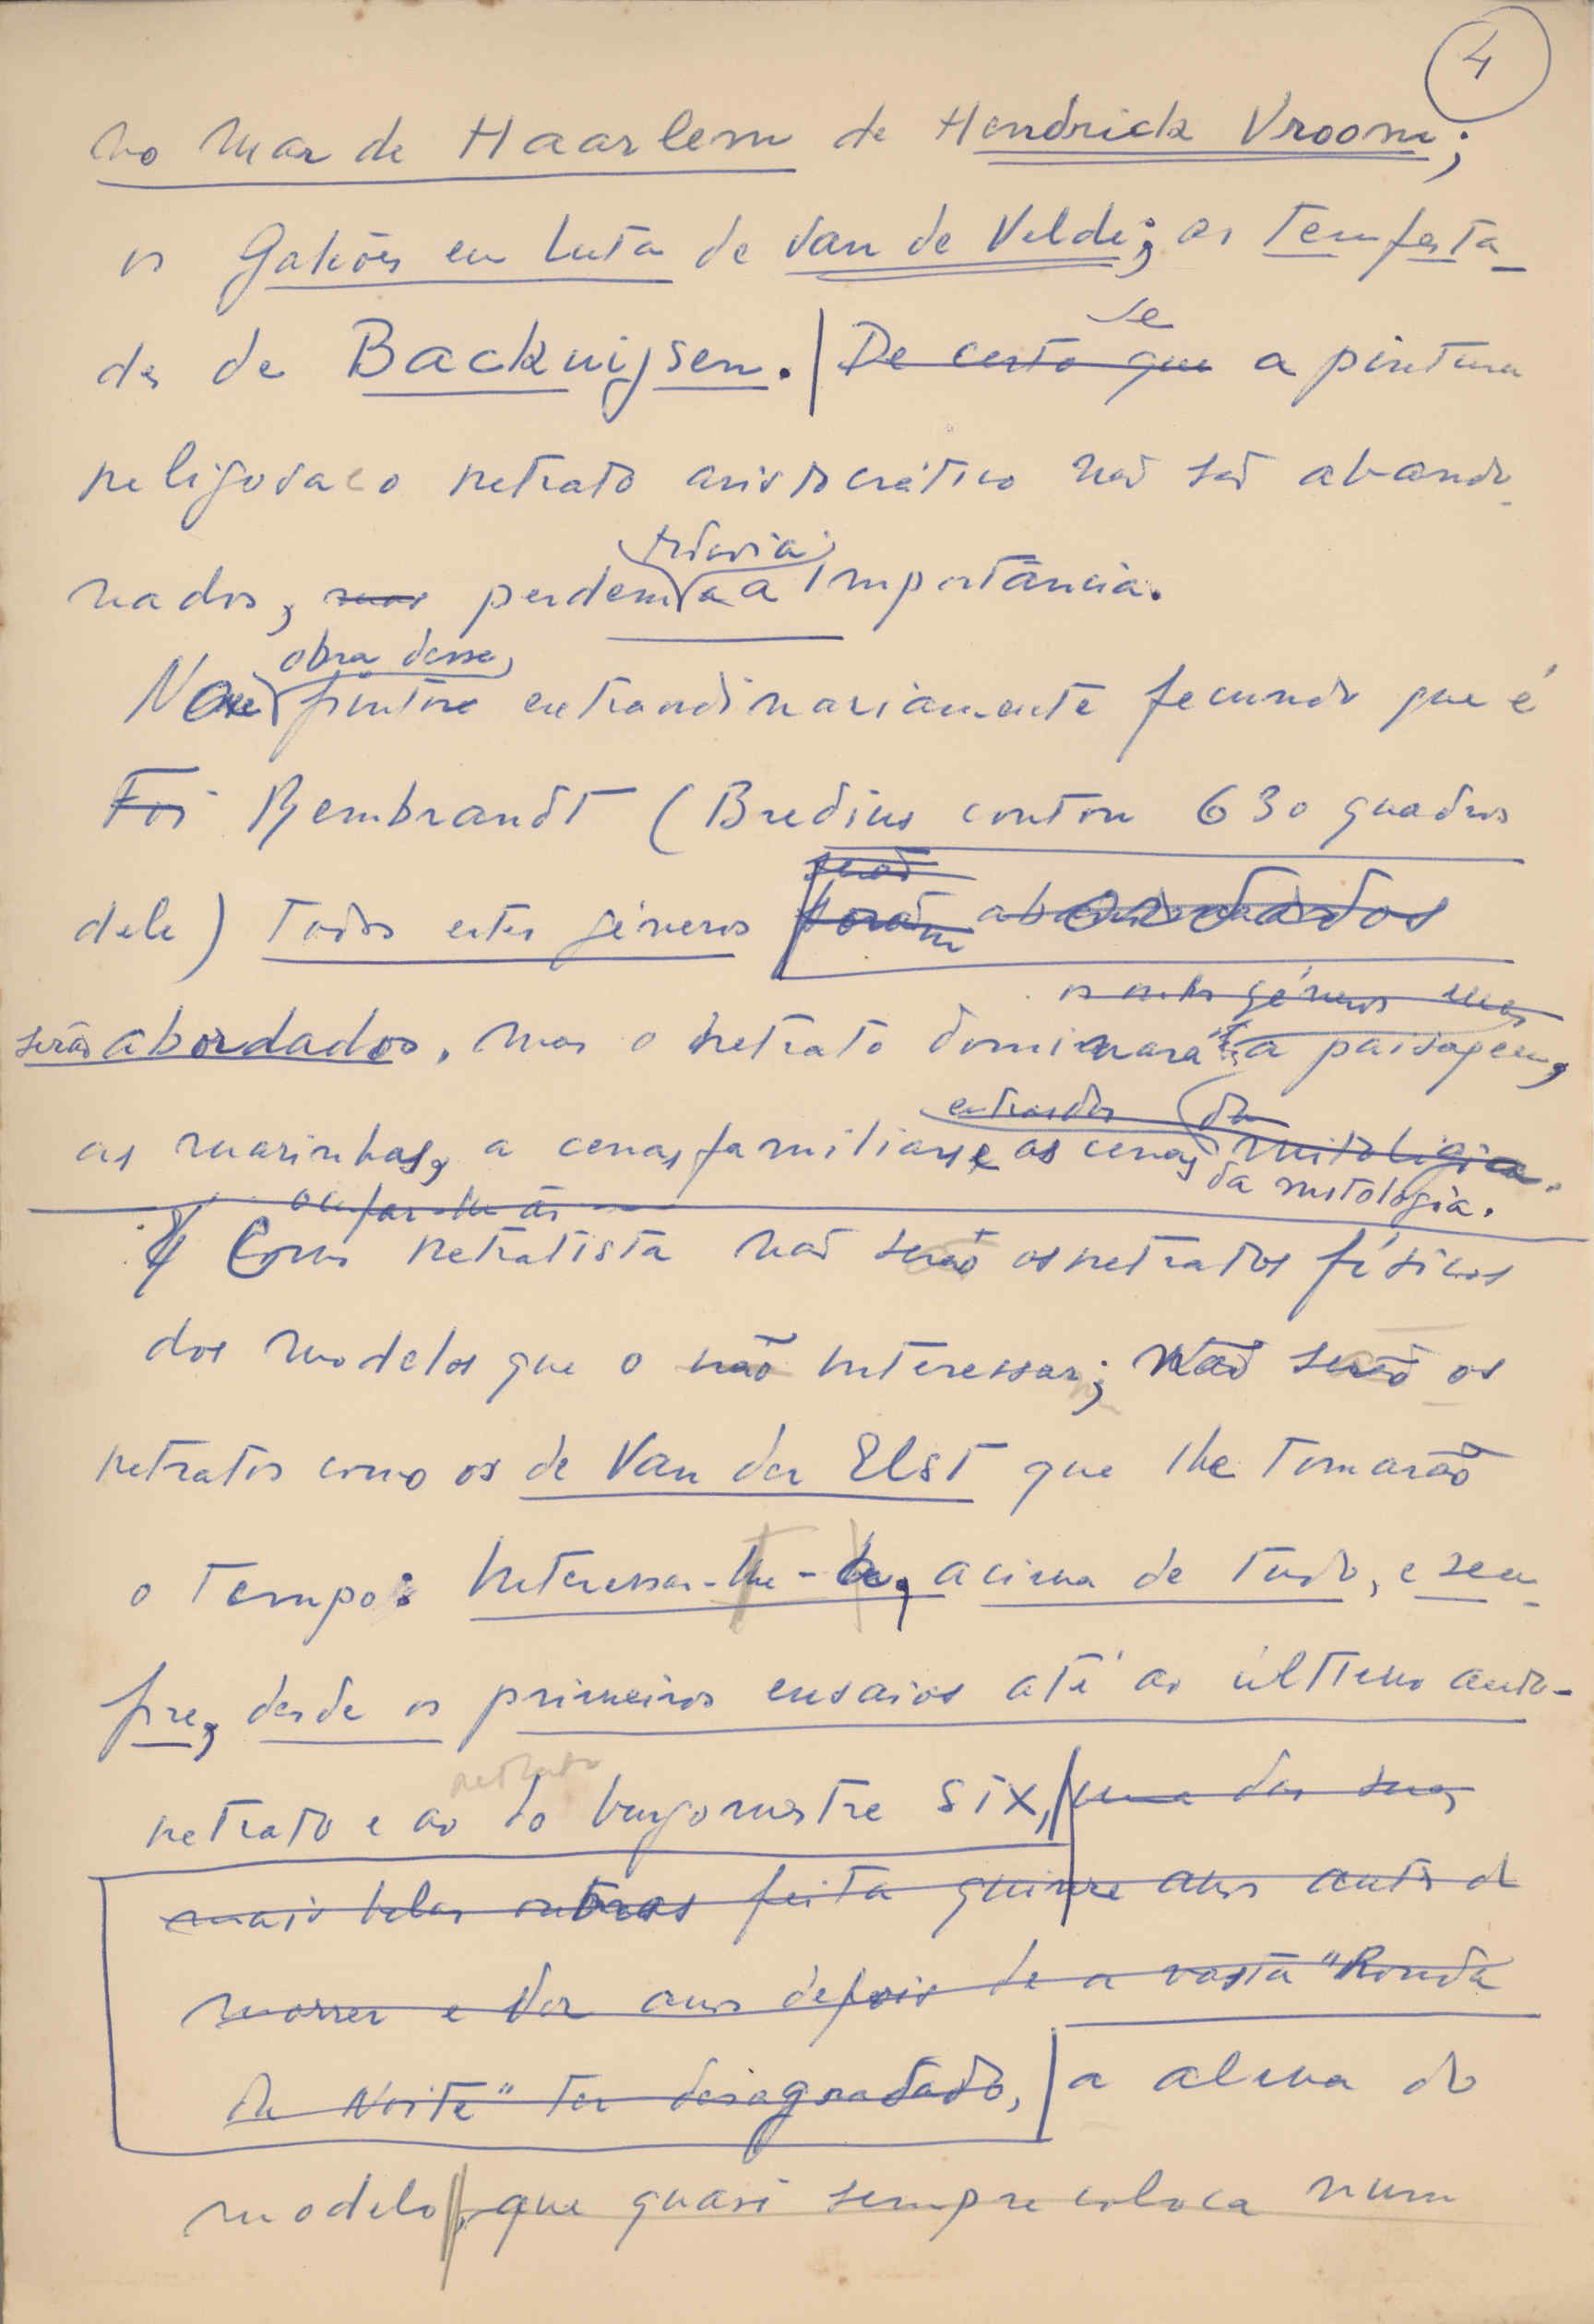 4
no mar de Haarlem de Hendrick Vroom;
os Galiões em Luta de Van de Velde; as tempesta-
des de Backuijsen. De certo que a pintura
se
religiosa e o retrato aristocrático não são abando-
nados, mas perdem a a importância.
todavia
obra desse
pintor extraordinariamente fecundo que é
Foi Rembrandt (Bredius contou 630 quadros
serão
dele) todos estes géneros foram abordados
os outros géneros mas
serão abordados, mas o retrato dominará a paisagem,
extraídos da
as marinhas, a cenas familiares e as cenas mitológica.
da mitologia.
Como retratista não serão os retratos físicos
dos modelos que o não interessar; não serão os
retratos como os de Van der Elst que lhe tomarão
o tempo: Interessar-lhe-á, acima de tudo, e sem-
pre, desde os primeiros ensaios até ao último auto-
retrato
retrato e ao do burgomestre Six, uma das suas
mais belas obras feita quinze anos antes de
morrer e dez anos depois de a vasta "Ronda
da Noite" ter desagradado, a alma do
modelo, que quasi sempre coloca num